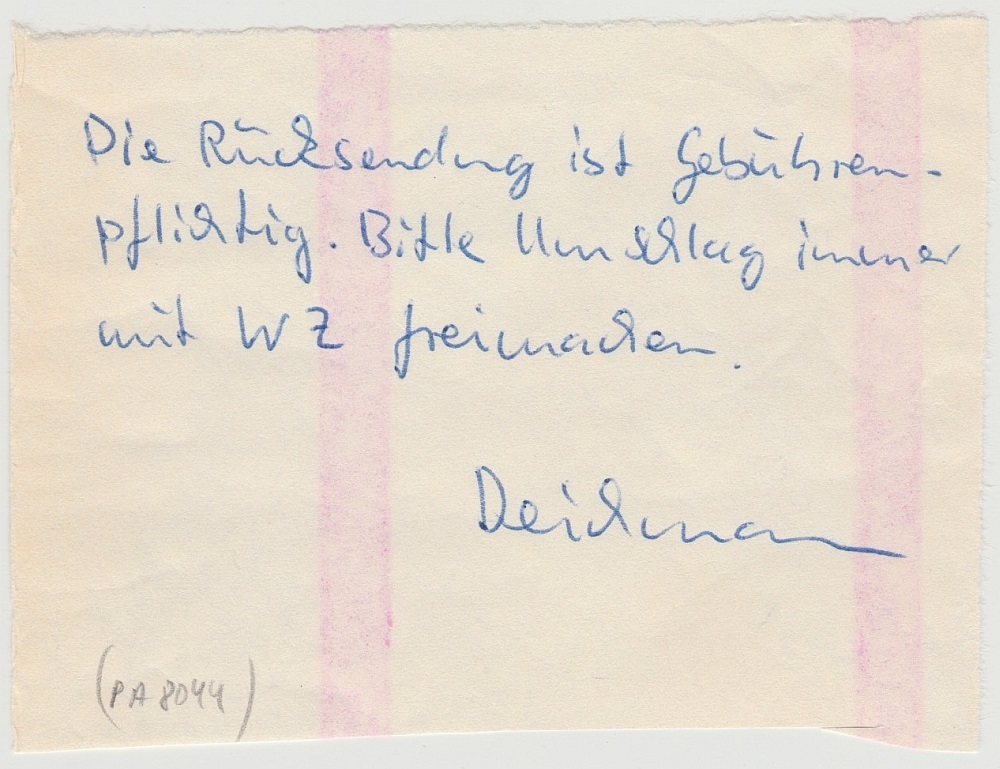 Die Rücksendung ist Gebühren-
pflichtig. Bitte Umschlag immer
mit WZ freimachen.
Deichmann
(PA 8044)